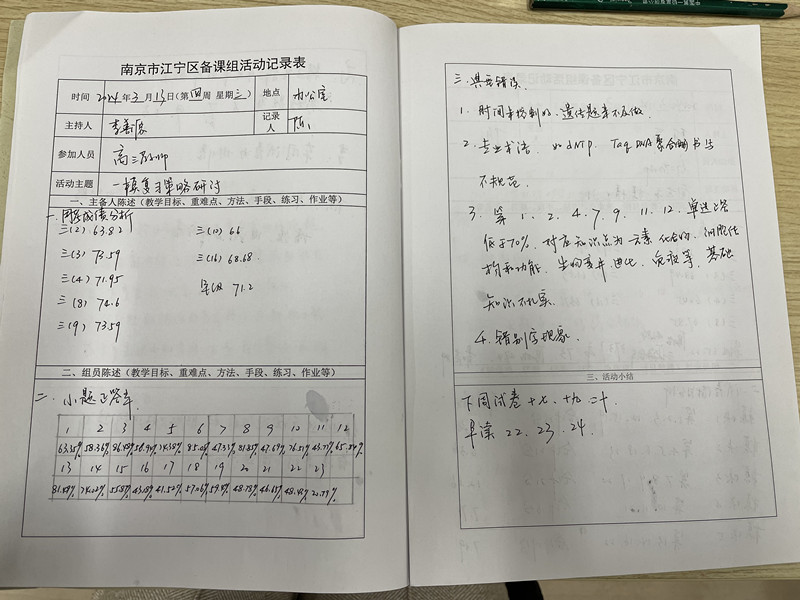 南京市江宁区备课组活动记录表
时间 2024年3月13日(第四周 星期三) 地点 办公室
主持人 记录人
参加人员 高三教师
活动主题 一模复习策略研讨
一、主备人陈述（教学目标、重难点、方法、手段、练习、作业等）
一、周练成绩分析
三(2) 63.82 三(10) 66
三(3) 73.59 三(16) 68.68
三(4) 71.95 年级 71.2
三(8) 74.6
三(9) 73.59
二、组员陈述（教学目标、重难点、方法、手段、练习、作业等）
二、小题正答率
1 2 3 4 5 6 7 8 9 10 11 12
63.35% 58.36% 86.48% 85.05% 47.31% 81.85% 47.69% 76.51% 43.77% 65.84%
13 14 15 16 17 18 19 20 21 22 23
81.49% 74.02% 55.87% 43.18% 41.52% 57.06% 59.4% 48.78% 46.65% 48.42% 22.79%
三、典型错误
1. 时间未控制好，遗传题来不及做.
2. 专业术语，如dNTP、Taq DNA聚合酶书写
不规范.
3. 第1. 2. 4. 7. 9. 11. 12. 单选正答
低于70%. 对应知识点为元素化合物、细胞结
构和功能、生物变异、进化、免疫等，基础
知识不扎实.
4. 错别字现象.
三、活动小结
下周试卷十七、十九、二十
早读 22. 23. 24.